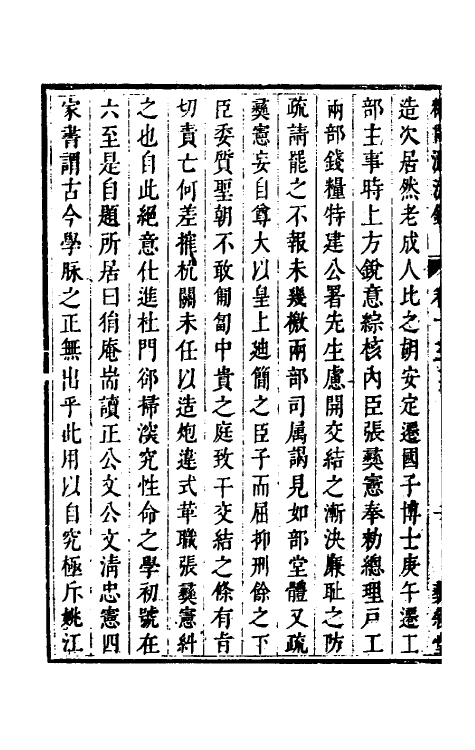 造次居然老成人比之胡安定遷國子博士庚午遷工
部主事時上方銳意綜核內臣張彝憲奉勑總理戶工
兩部錢糧特建公署先生慮開交結之漸決廉耻之防
疏請罷之不報未幾檄兩部司属謁見如部堂體又疏
彝憲妄自尊大以皇上廸簡之臣子而屈抑刑餘之下
臣委質聖朝不敢匍匐中貴之庭致干交結之條有旨
切責亡何差摧杭關未任以造炮違式革職張彝憲糾
之也自此絕意仕進杜門郤掃淡究性命之學初號在
六至是自題所居曰狷庵耑讀正公文公文清忠憲四
家書謂古今學脉之正無出乎此用以自究極斥姚江